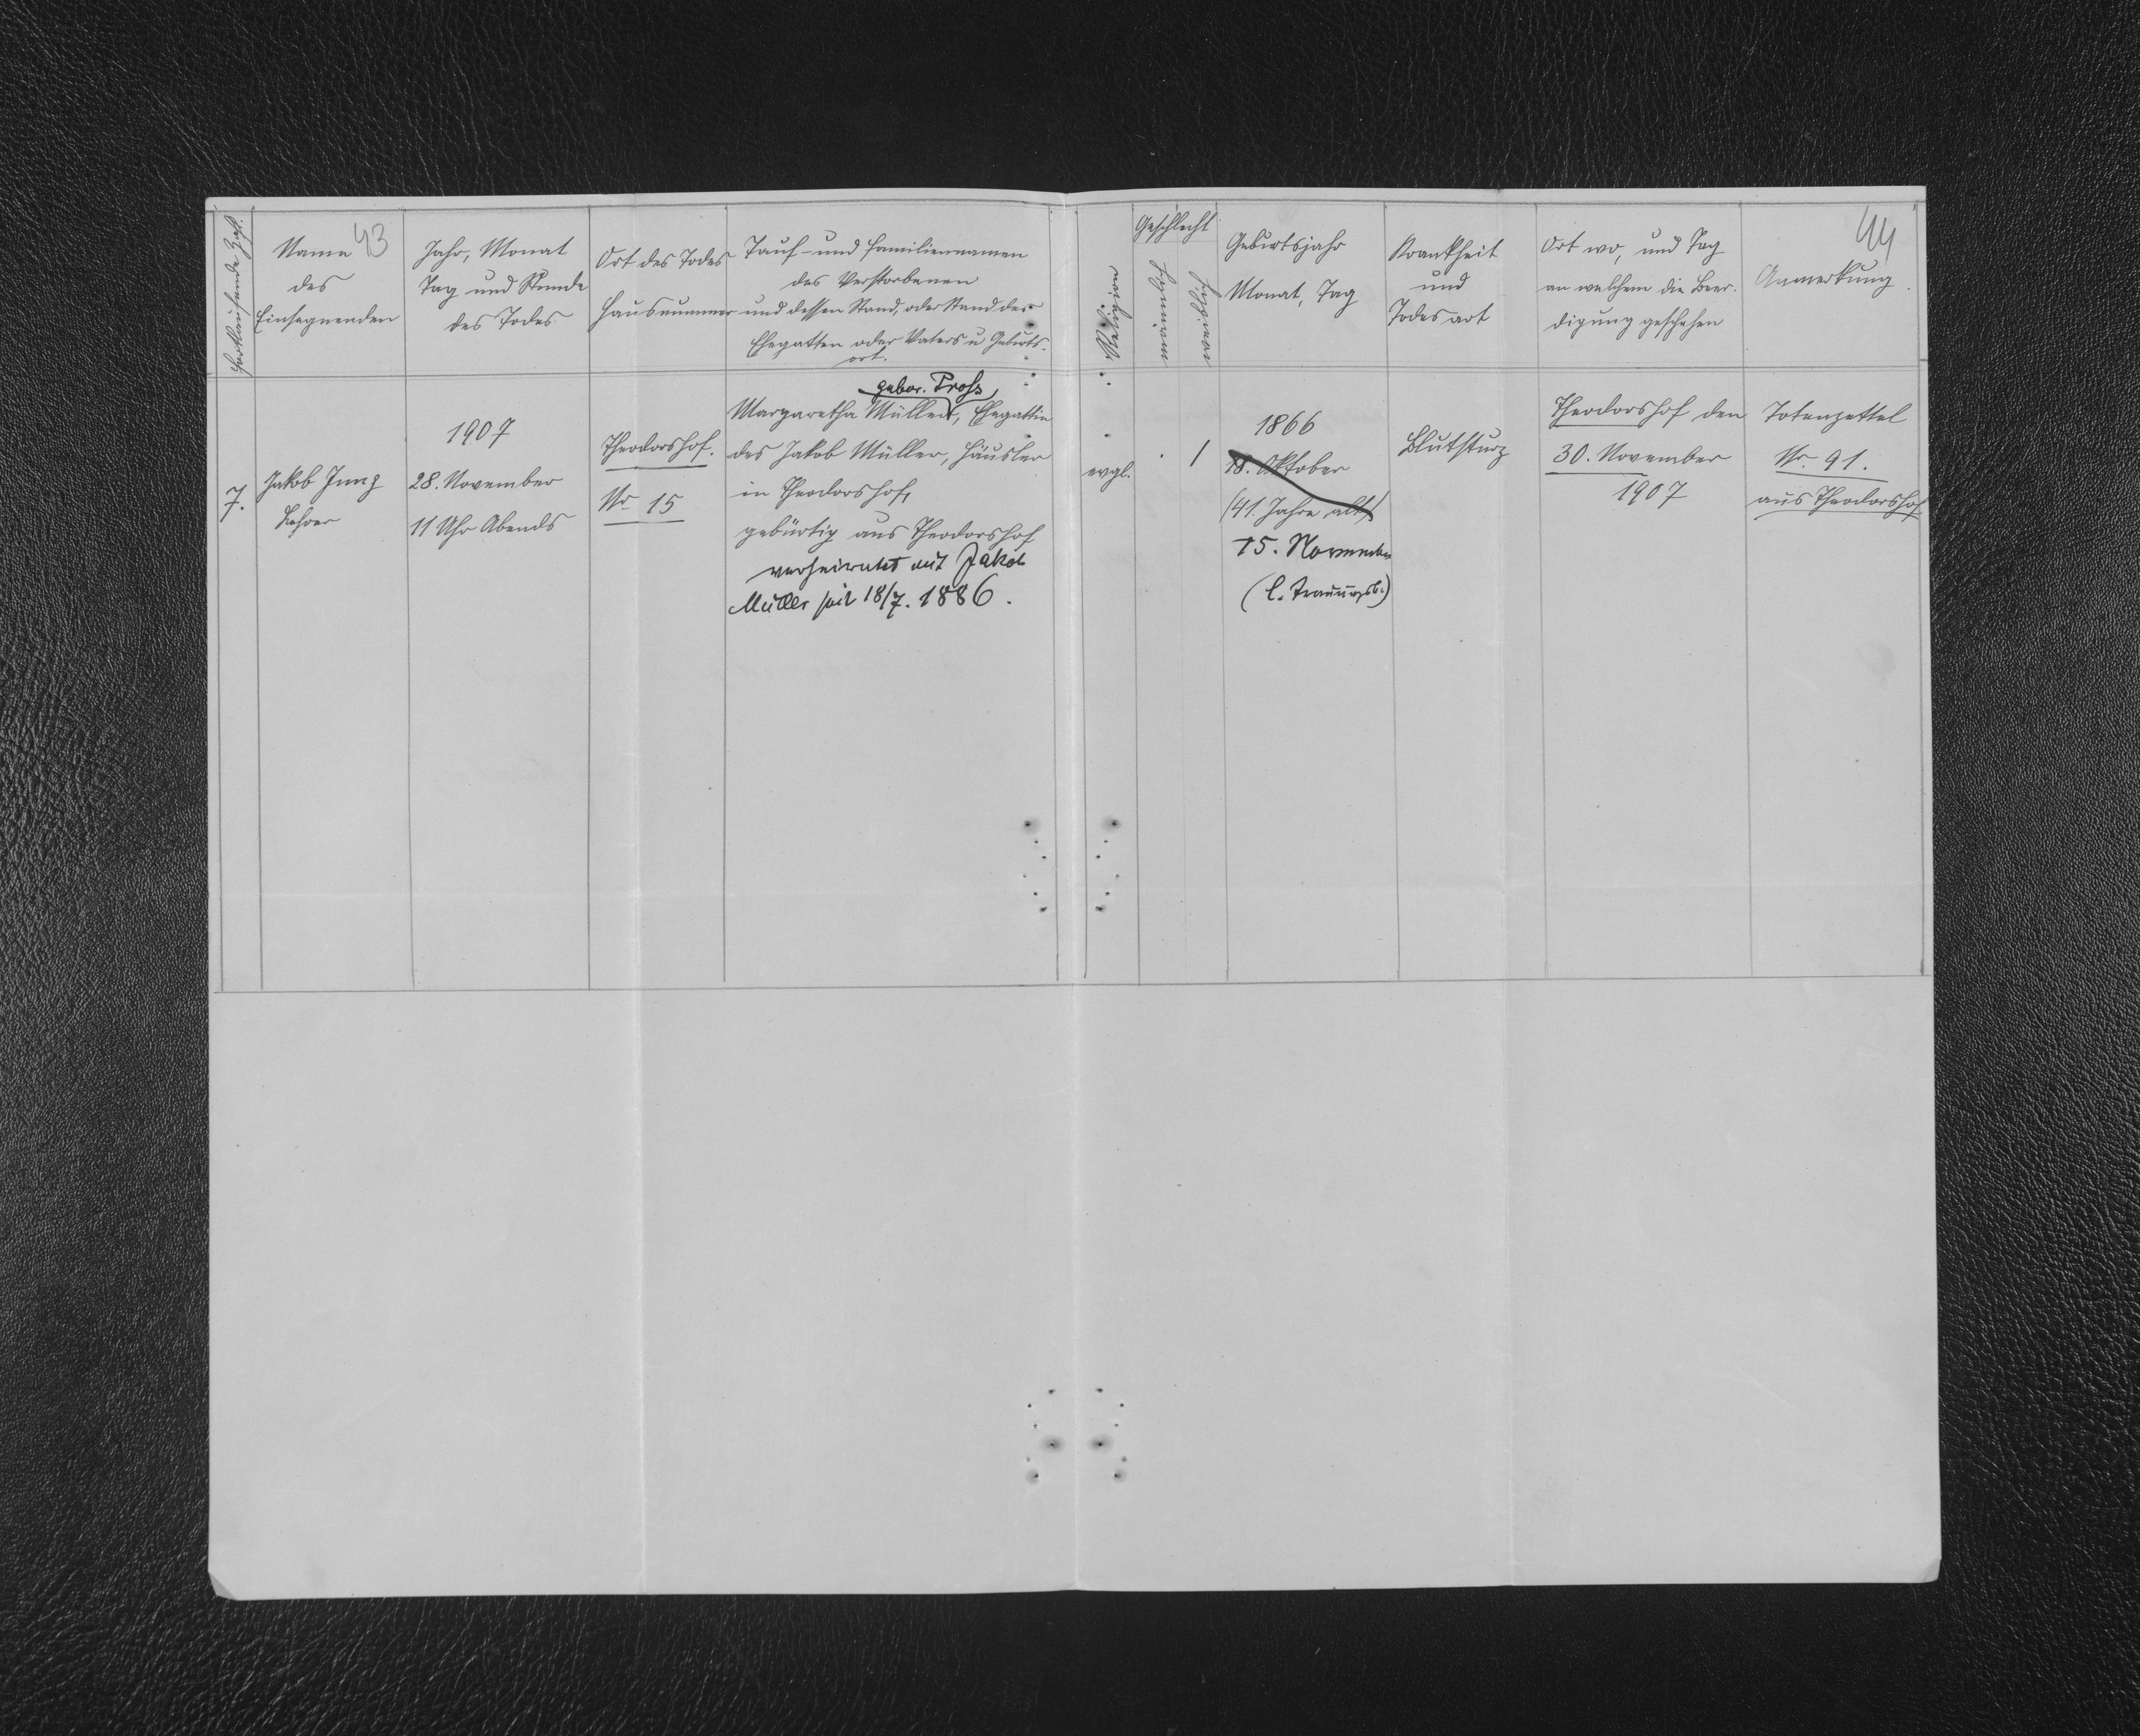 43
44
Fortlaufende Zahl.
Name
des
Einsegnenden
Jahr, Monat
Tag und Stunde
des Todes
Ort des Todes
Hausnummer
Tauf- und Familiennamen
des Verstorbenen
und dessen Stand, oder Stand des
Ehegatten oder Vaters u Geburts-
ort.
Religion
Geschlecht
männlich
weiblich
Geburtsjahr
Monat, Tag
Krankheit
und
Todesart
Ort wo, und Tag
an welchem die Beer-
digung geschehen
Anmerkung.
7.
Jakob Jung
Lehrer
1907
28. November
11 Uhr Abends
Theodorshof.
Nr 15
gebor. Prohs
Margaretha Müller, Ehegattin
des Jakob Müller, Häusler
in Theodorshof,
gebürtig aus Theodorshof
verheiratet mit Jakob
Müller seit 18/7. 1886.
evgl.
1
1866
18. Oktober
(41. Jahre alt)
15. November
(l. Trauungsb.)
Blutsturz
Theodorshof den
30. November
1907
Totenzettel
Nr. 91.
aus Theodorshof